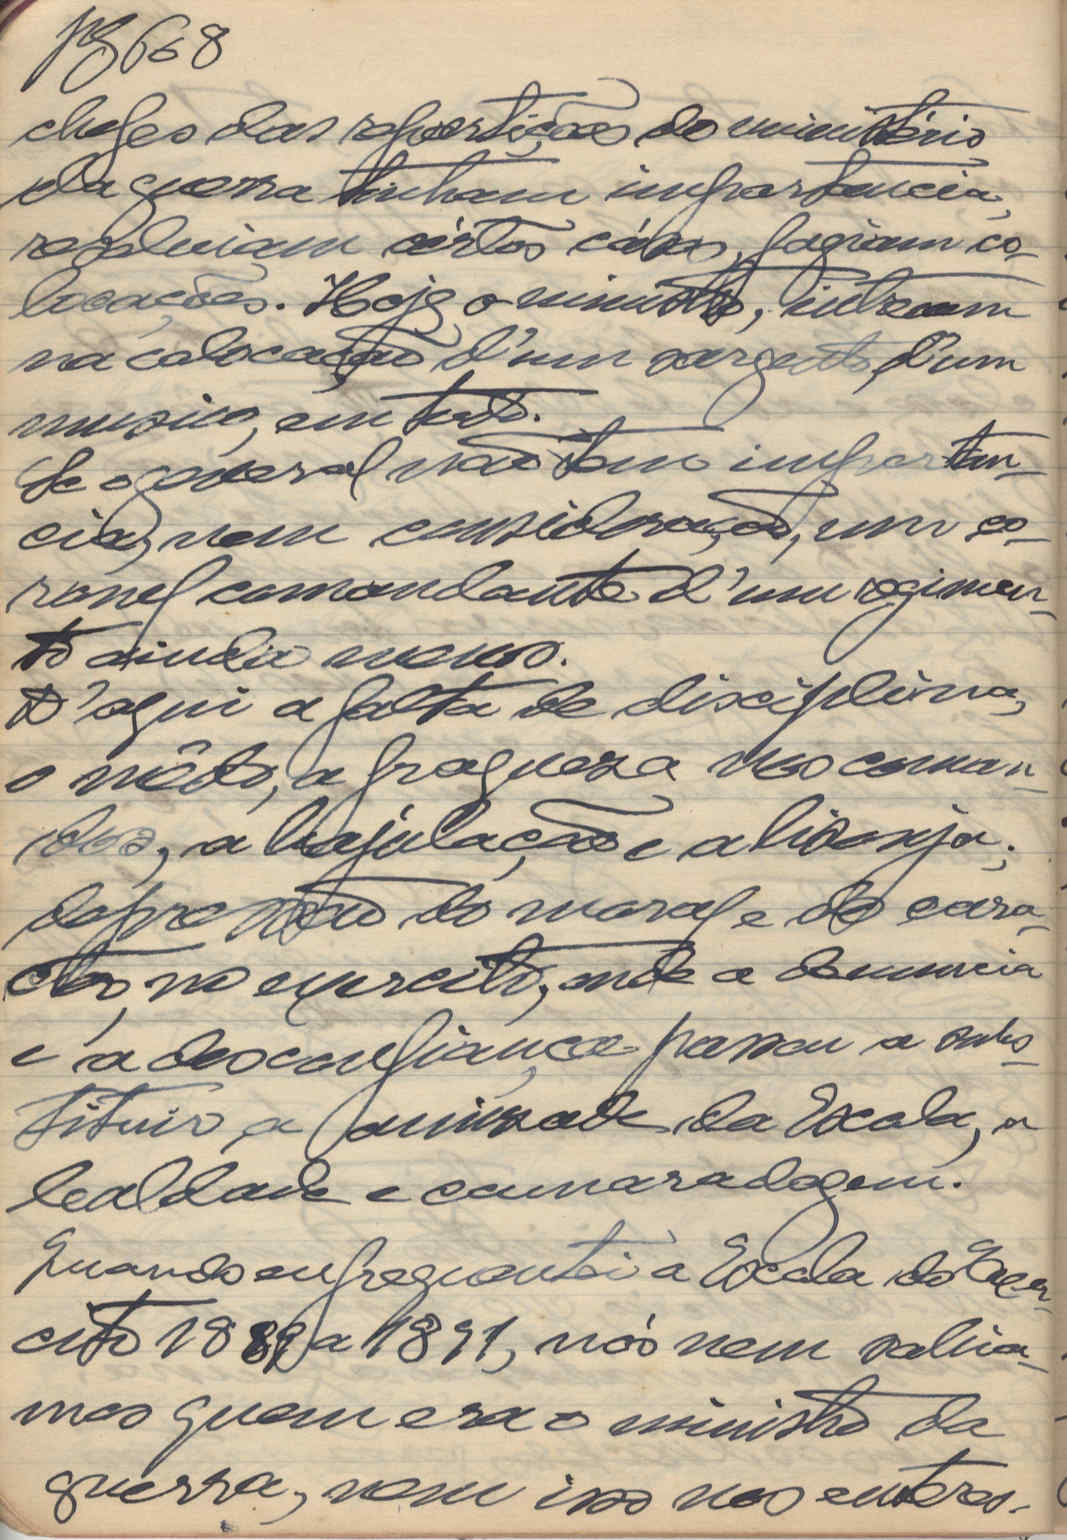 pg 668
chefes das repartições do ministério
da guerra tinham importancia,
resolviam cértos cásos, faziam co-
locações. Hoje o ministro, intervem
na colocação d'um sargento, d'um
musico, em tudo.
Se o general não tem importan-
cia, nem consideração, um co-
ronel comandante d'um regimen-
to ainda menos.
D'aqui a falta de disciplina,
o mêdo, a fraqueza nos coman-
dos, a bajulação e a lisonja;
depressão do moral e do cara-
cter, no exercito, onde a denuncia
e a desconfiança passou a subs-
tituir a amizade da Escola, a
lealdade e camaradagem.
Quando eu frequentei a Escola do Exer-
cito 1889 a 1891, nós nem sabia-
mos quem era o ministro da
guerra, nem isso nos enteres-